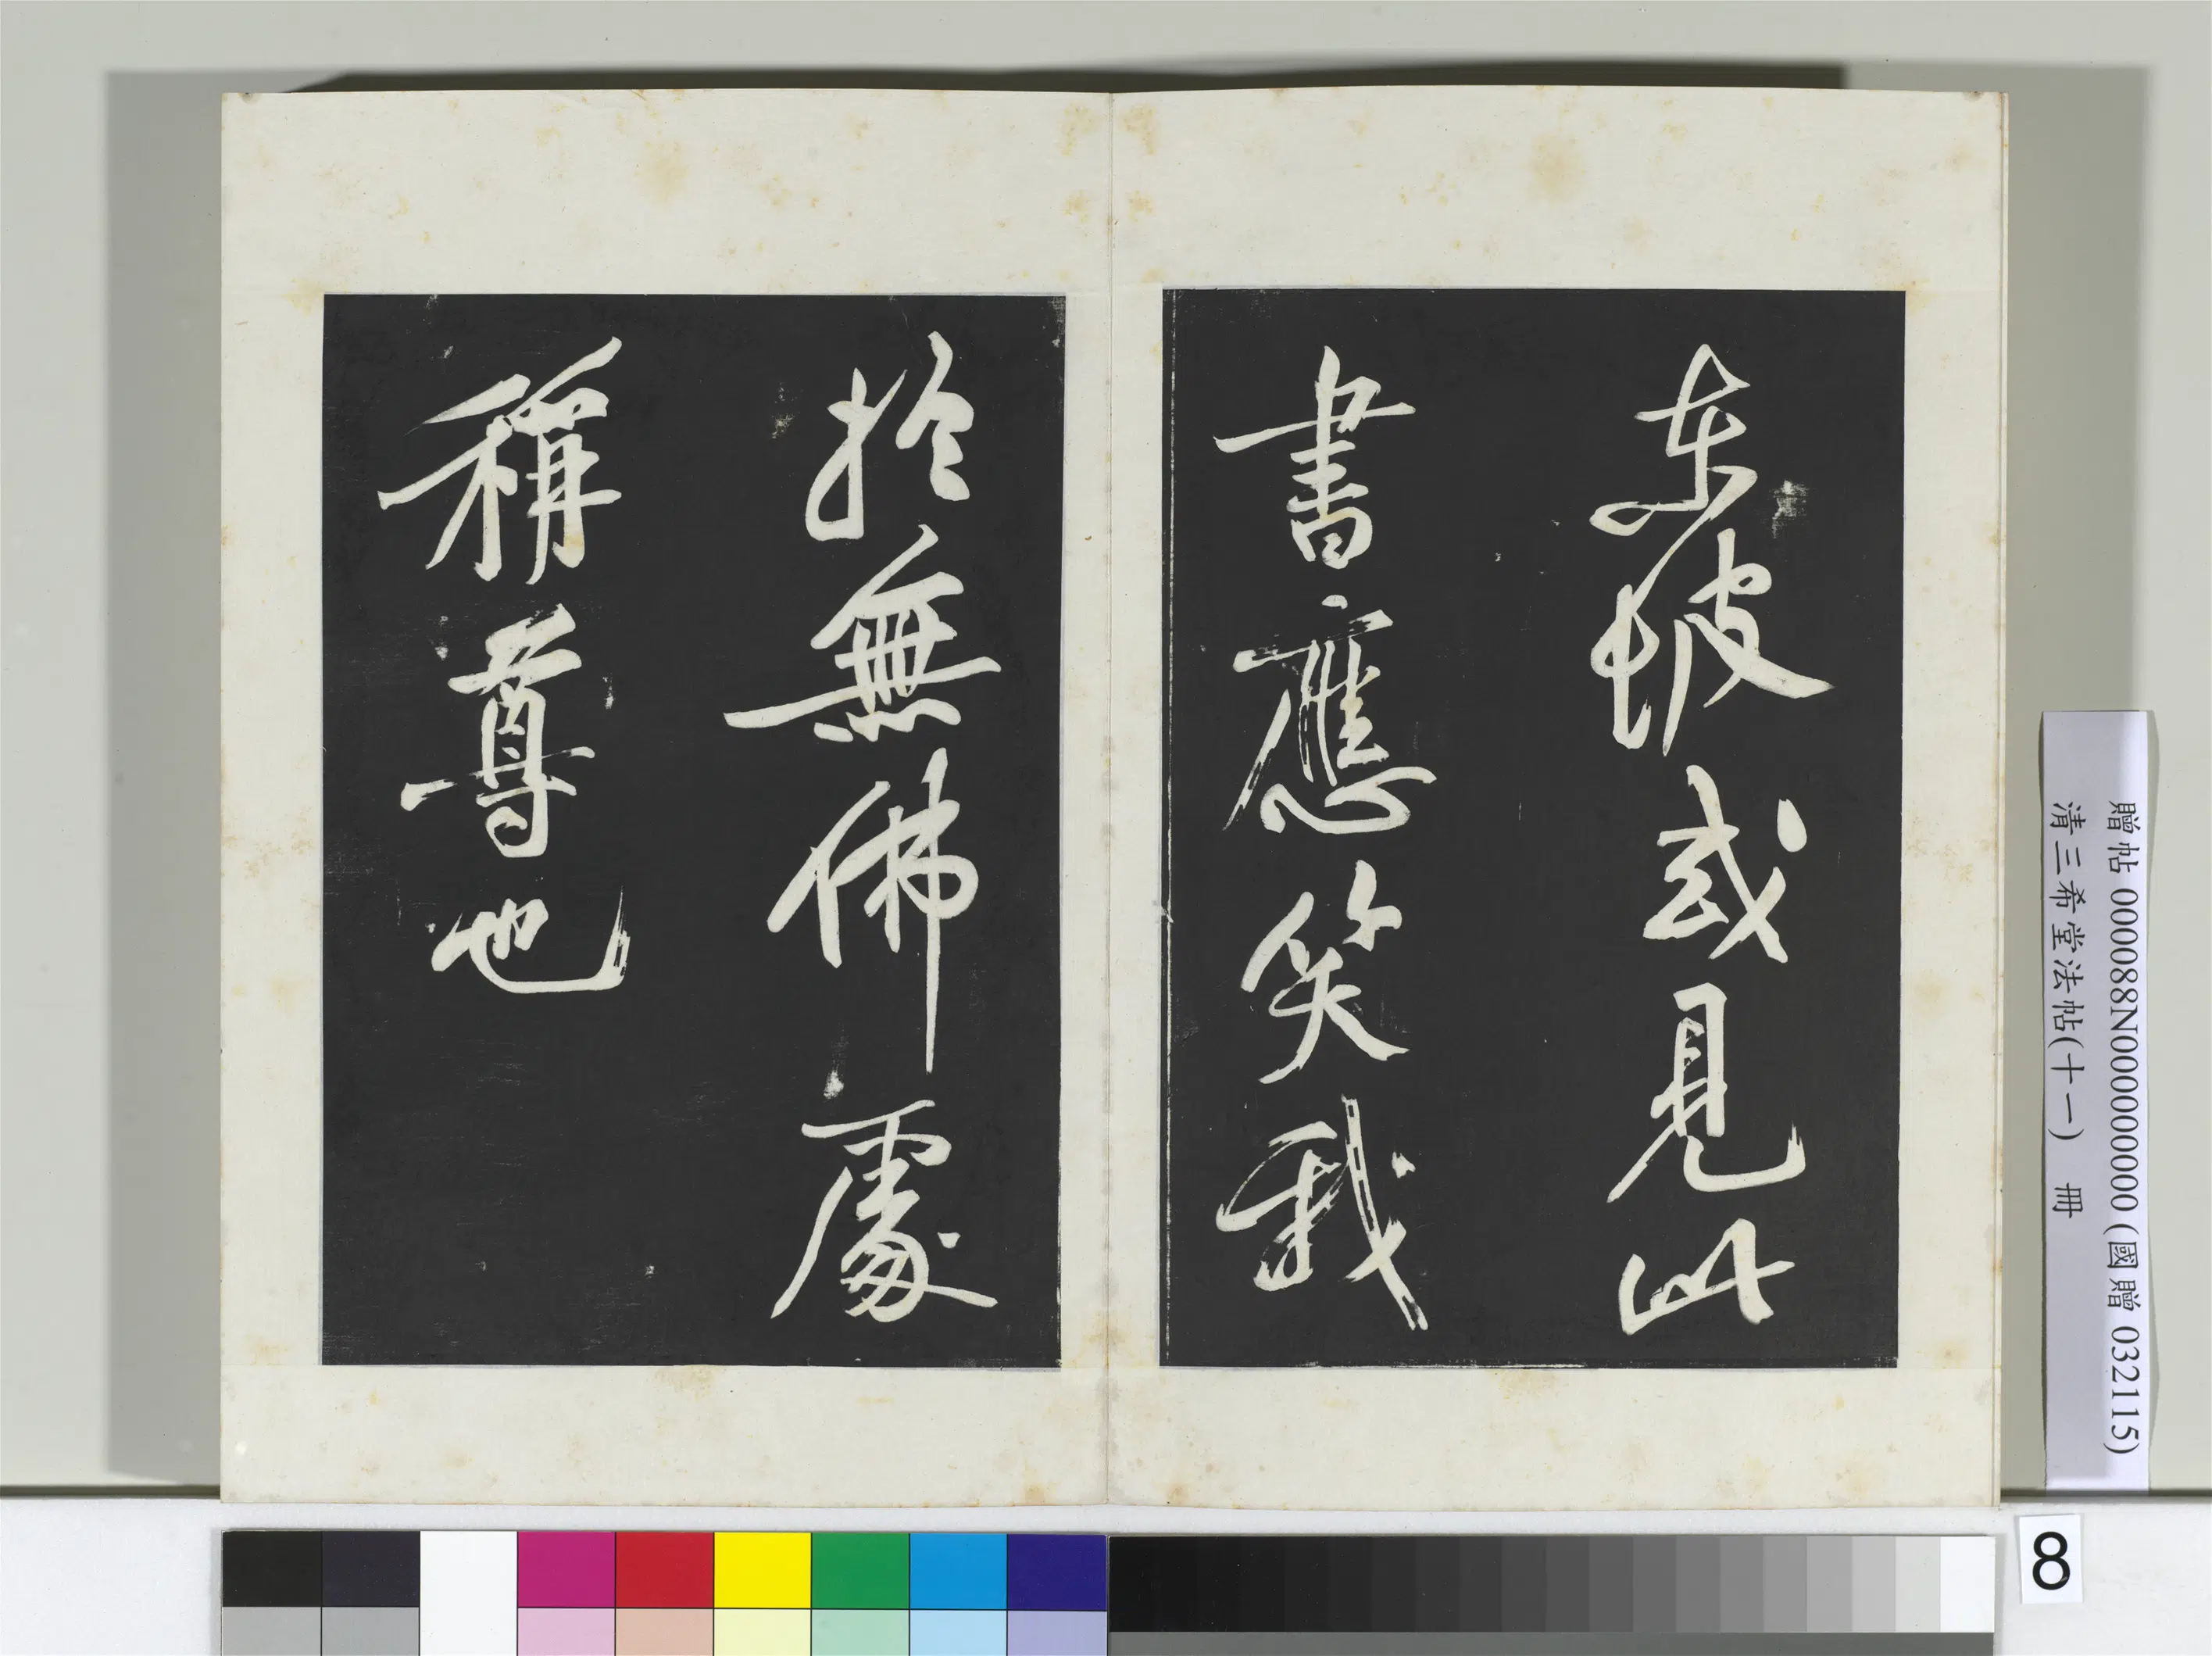 東坡或見此
書應笑我
於無佛處
稱尊也
贈帖 000088N000000000 (國贈 032115)
清三希堂法帖(十一) 冊
8